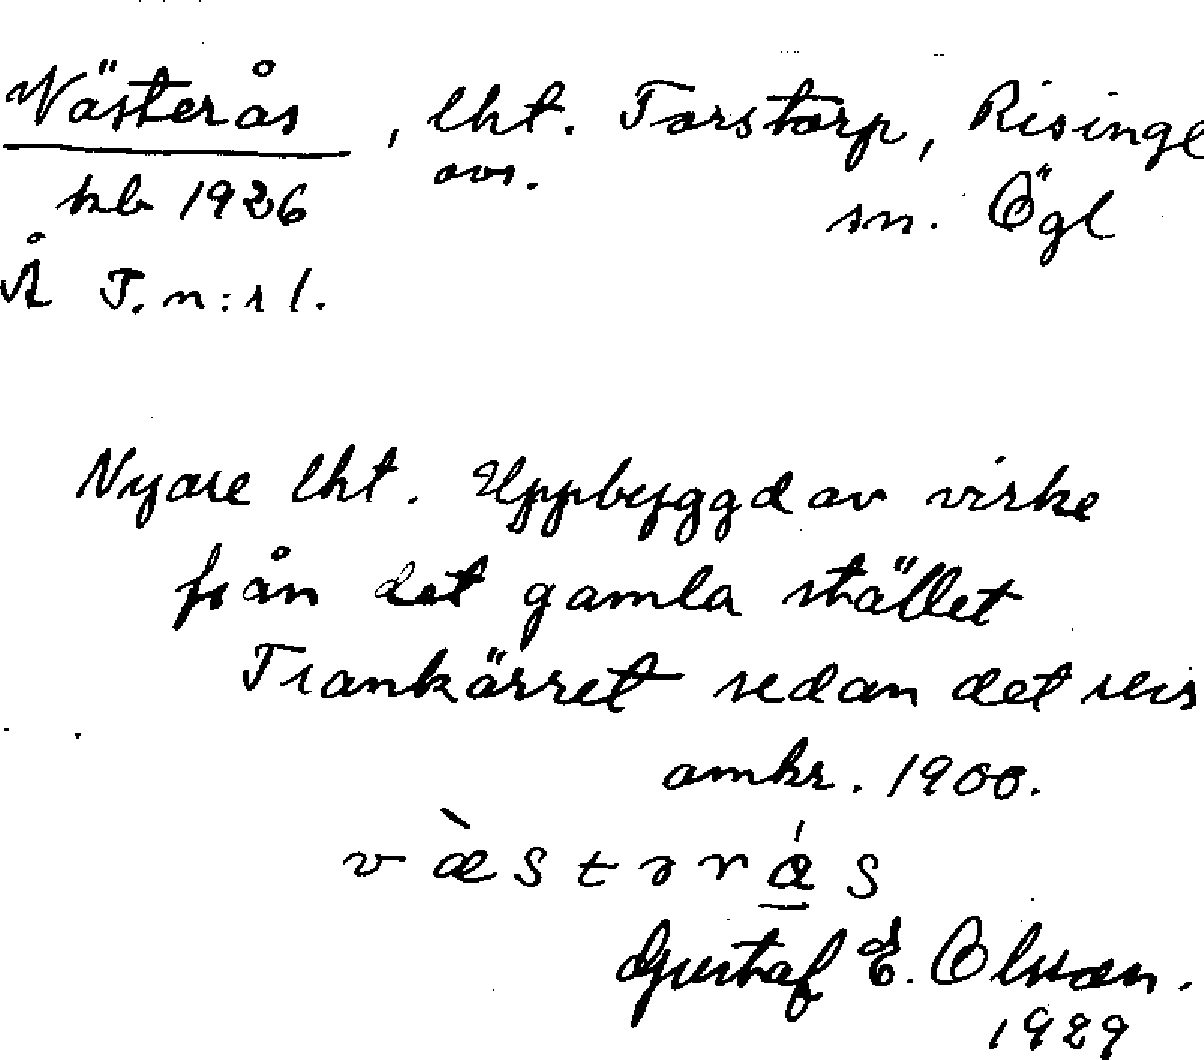 Västerås, lht. Torstorp, Risinge
avs.
kb 1926 sn. Ögl
Å T. n:r 1.
Nyare lht. Uppbyggd av virke
från det gamla stället
Trankärret sedan det revs
omkr. 1900.
v æ̀ s t ə r á̱ s
Gustaf E. Olsson.
1929